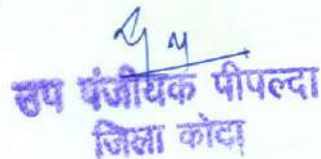 उप पंजीयक पीपल्दा
जिला कोटा